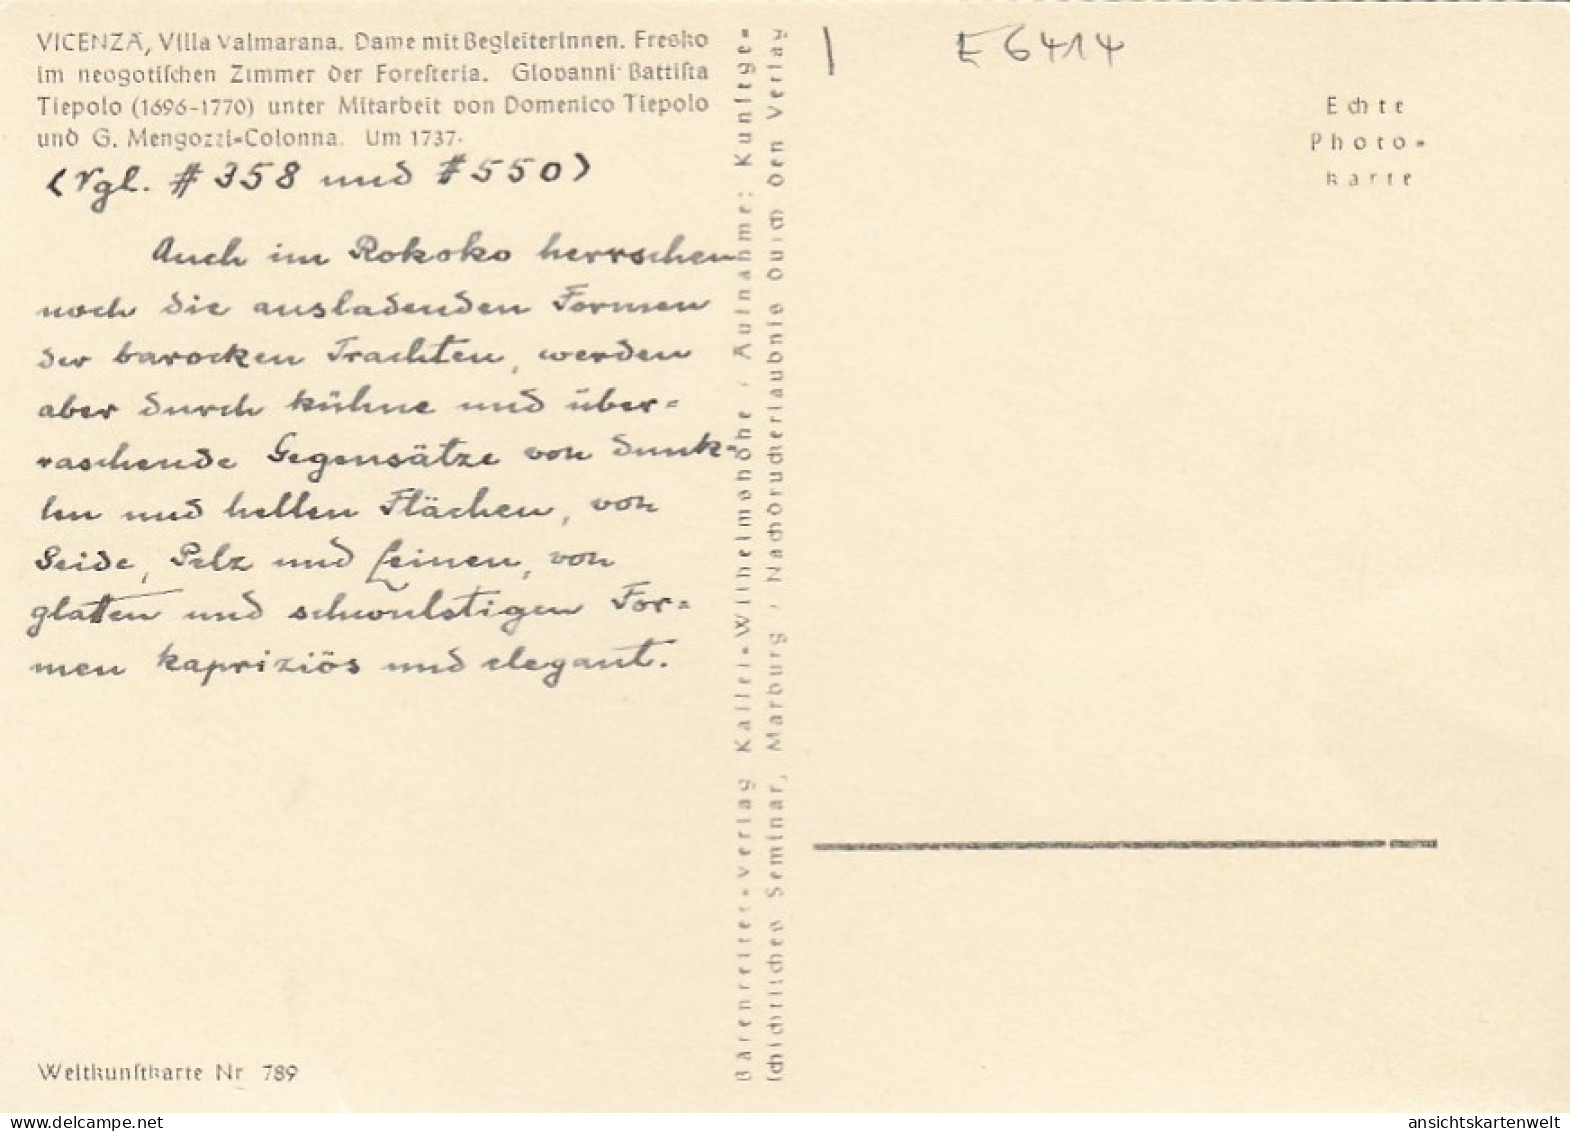 VICENZA, Villa Valmarana. Dame mit Begleiterinnen. Fresko
im neogotiſchen Zimmer der Foreſteria. Giovanni Battiſta
Tiepolo (1696-1770) unter Mitarbeit von Domenico Tiepolo
und G. Mengozzi-Colonna. Um 1737.
(Vgl. # 358 und # 550)
Auch im Rokoko herrschen
noch die ausladenden Formen
der barocken Trachten, werden
aber durch kühne und über=
raschende Gegensätze von dunk-
len und hellen Flächen, von
Seide, Pelz und Leinen, von
glatten und schwulstigen For=
men kapriziös und elegant.
Weltkunſtkarte Nr 789
Bärenreiter-Verlag Kaſſel-Wilhelmshöhe / Aufnahme: Kunſtge-
ſchichtliches Seminar, Marburg / Nachdruckerlaubnis durch den Verlag
E 6414
Echte
Photo-
karte
ansichtskartenwelt